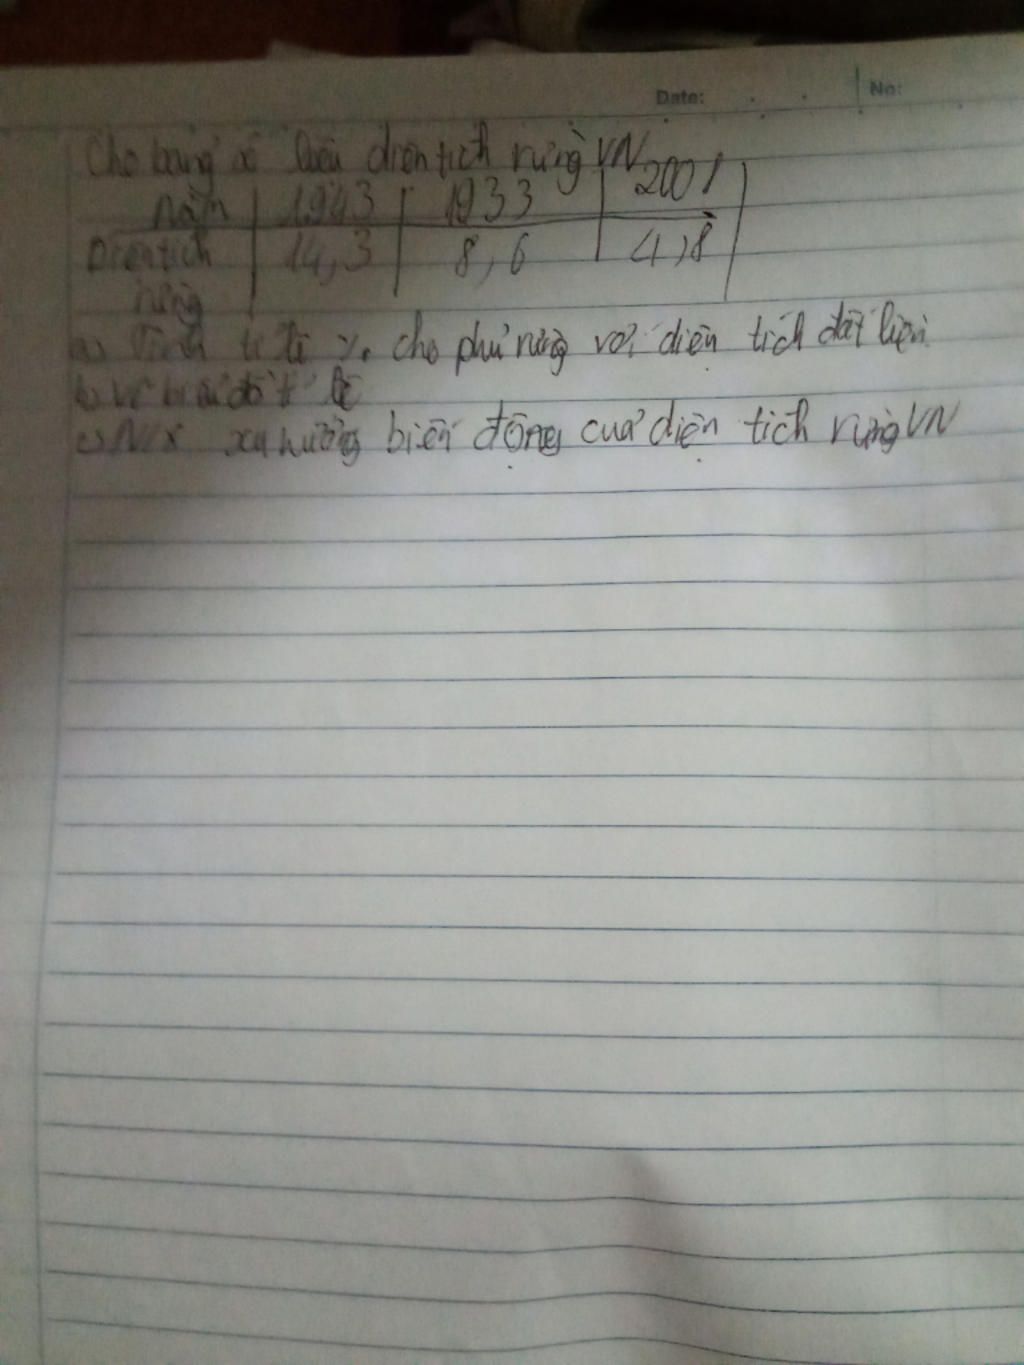 Date: No:
Cho bảng số liệu diện tích rừng VN
Năm 1943 1933 2001
Diện tích 14,3 8,6 4,8
rừng
a) Tính tỉ lệ % che phủ rừng với diện tích đất liền
b) Vẽ biểu đồ tỉ lệ
c) N/x xu hướng biến động của diện tích rừng VN